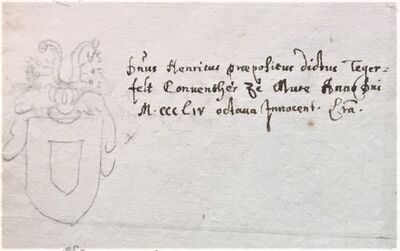 Dnus Henricus præpositus dictus Teger=
felt Conventher Ze Mure Anno Dni
M. CCC LIV octava Innocent.